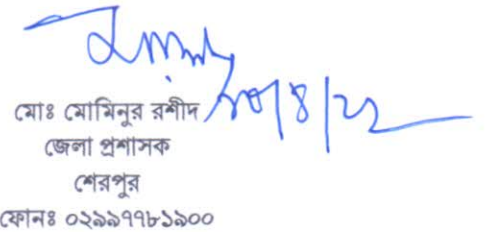 মোঃ মোমিনুর রশীদ
জেলা প্রশাসক
শেরপুর
ফোনঃ ০২৯৯৭৭৮১৯০০